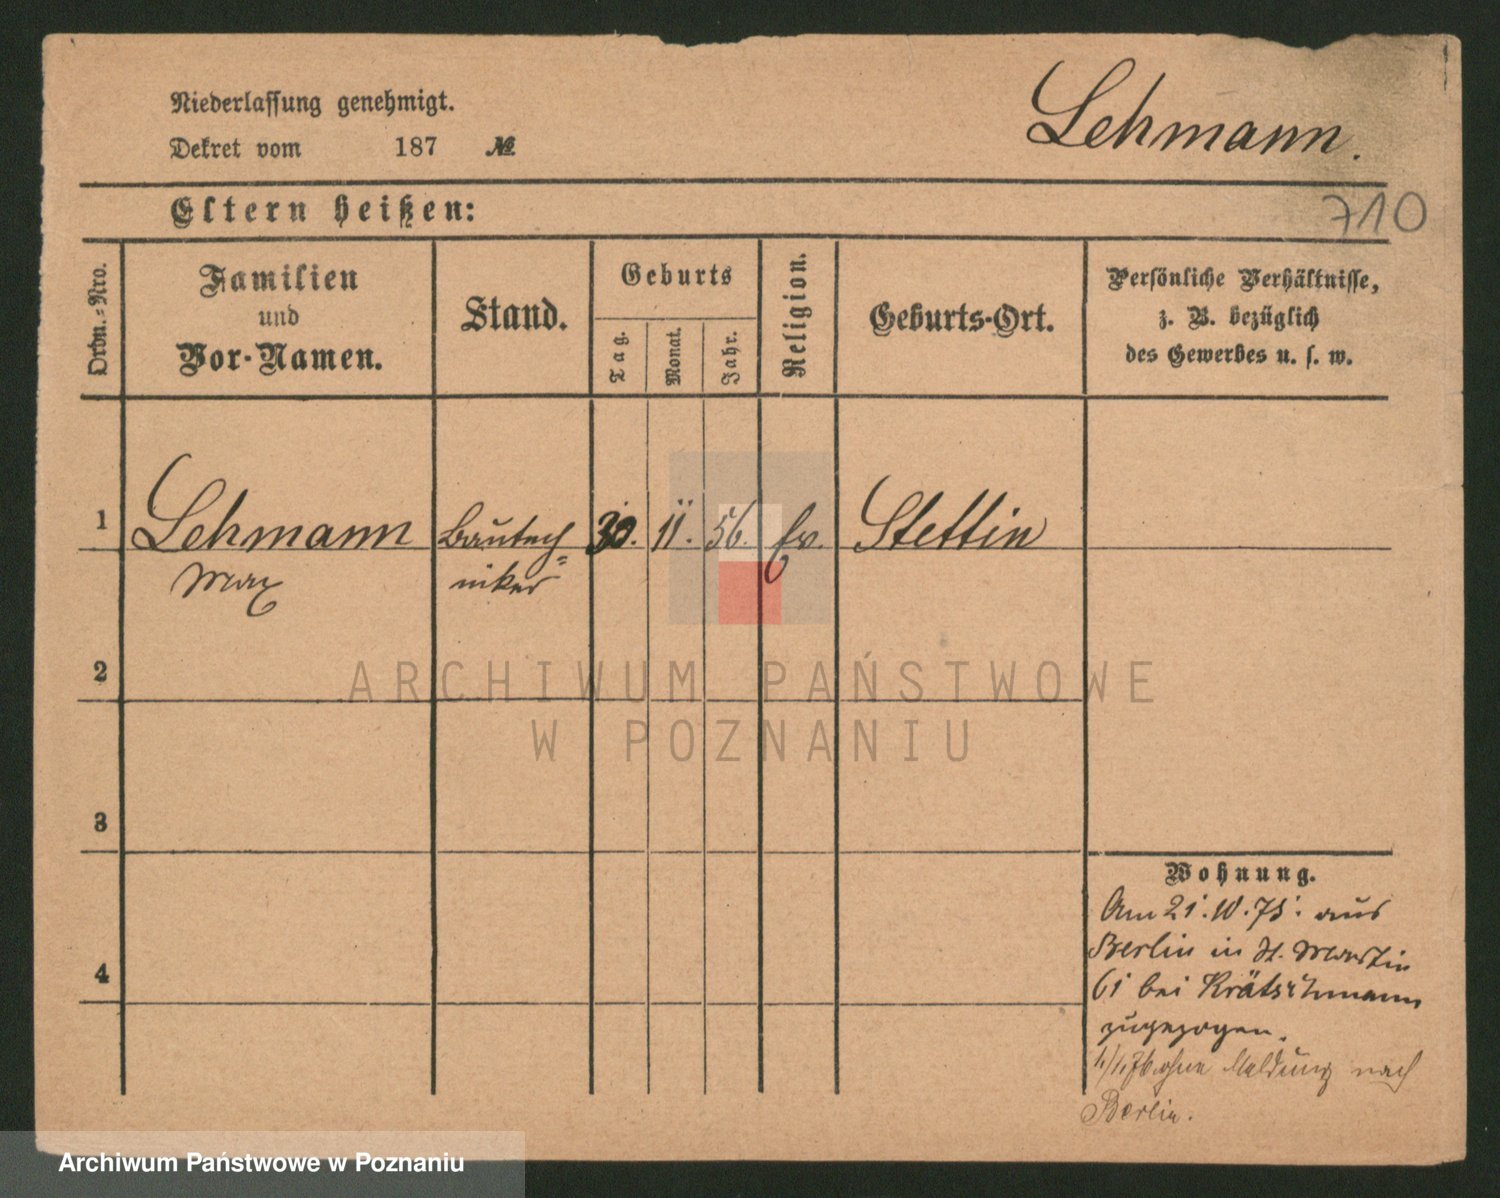 Niederlassung genehmigt.
Dekret vom 187 №
Lehmann.
710
Eltern heißen:
Ordn.-Nro.
Familien
und
Vor-Namen.
Stand.
Geburts
Tag.
Monat.
Jahr.
Religion.
Geburts-Ort.
Persönliche Verhältnisse,
z. B. bezüglich
des Gewerbes u. s. w.
1 Lehmann Bautech= 30. 11. 56. ev. Stettin
Max niker
2
3
4
Wohnung.
Am 21. 10. 75. aus
Berlin in St. Martin
61 bei Krätschmann
zugezogen.
ohne Meldung nach
Berlin.
ARCHIWUM PAŃSTWOWE
W POZNANIU
Archiwum Państwowe w Poznaniu